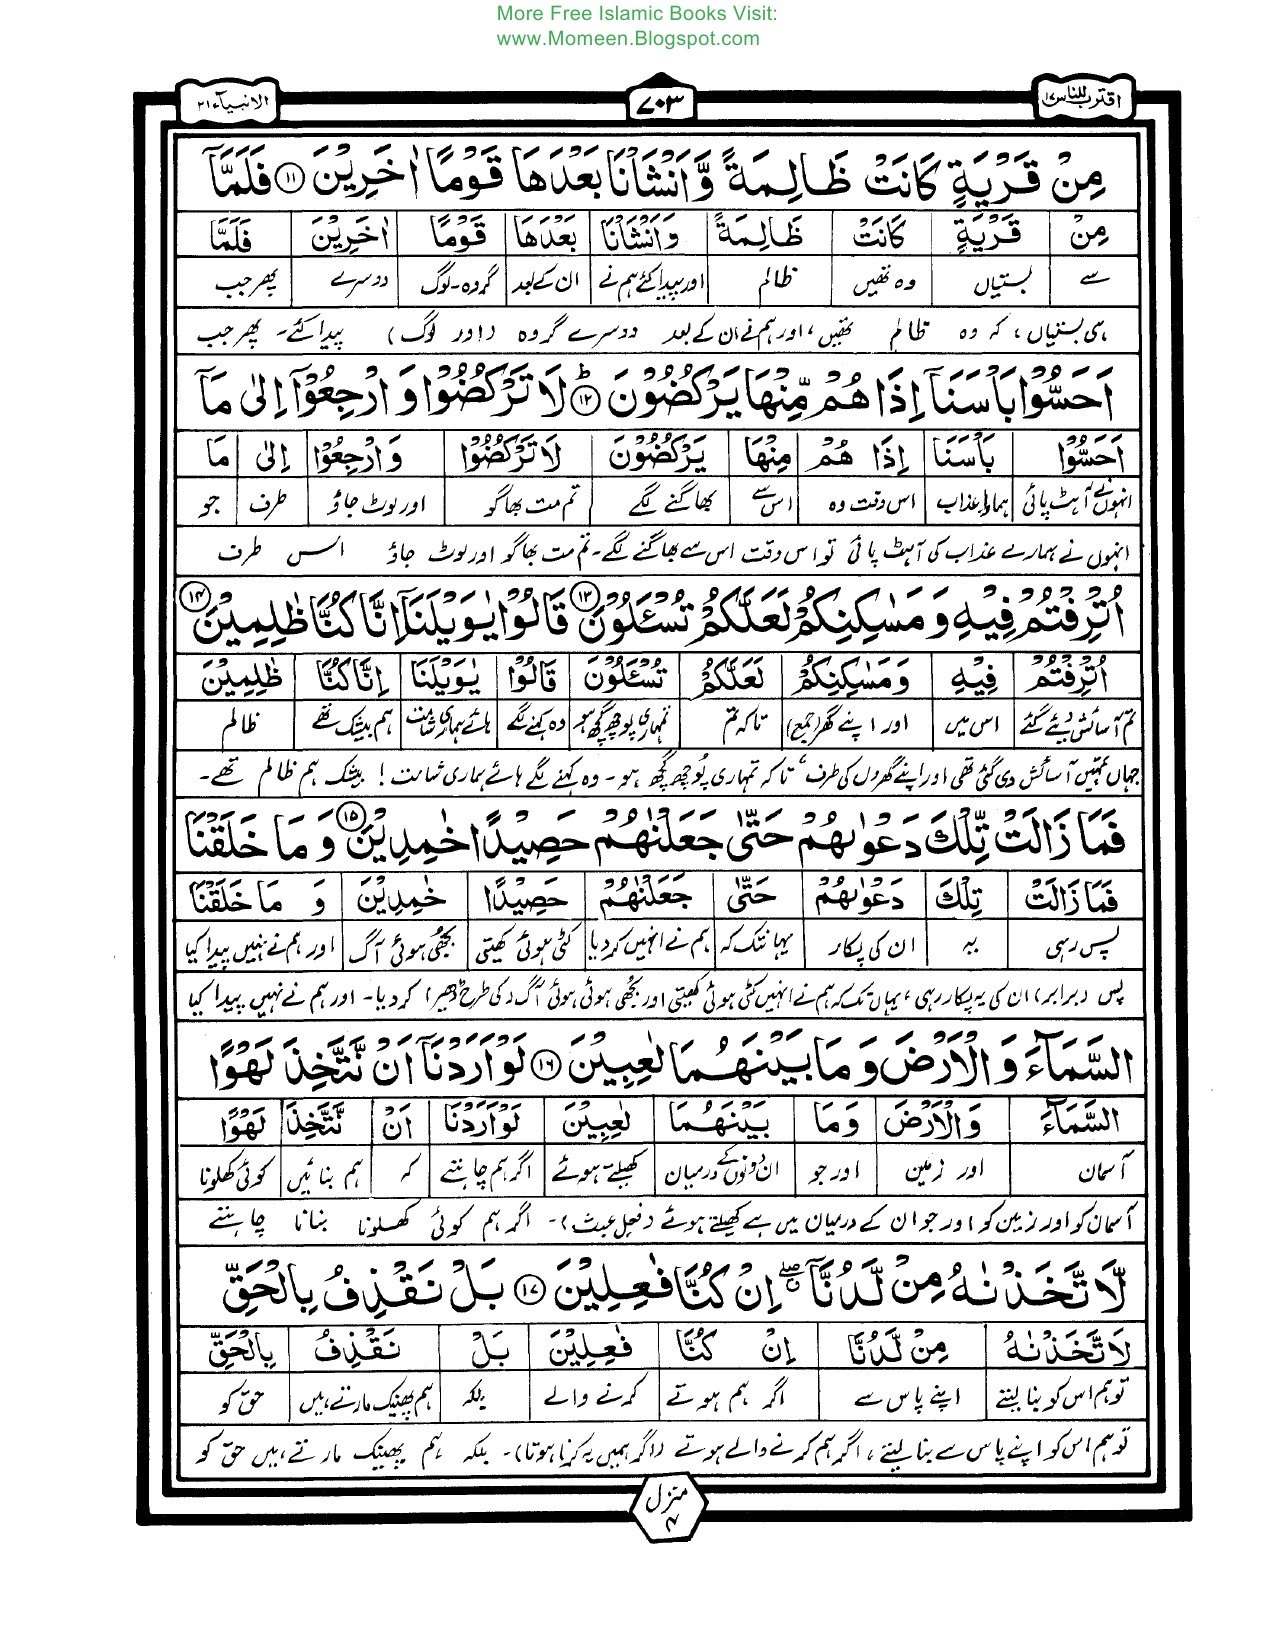 More Free Islamic Books Visit:
www.Momeen.Blogspot.com
اقترب للناس ۱۷
۷۰۳
الانبیآء ۲۱
مِنْ قَرْيَةٍ كَانَتْ ظَالِمَةً وَّاَنْشَاْنَا بَعْدَهَا قَوْمًا اٰخَرِيْنَ ۱۱ فَلَمَّآ
مِنْ قَرْيَةٍ كَانَتْ ظَالِمَةً وَاَنْشَاْنَا بَعْدَهَا قَوْمًا اٰخَرِيْنَ فَلَمَّآ
سے بستیاں وہ تھیں ظالم اور پیدا کئے ہم نے ان کے بعد گروہ۔لوگ دوسرے پھر جب
ہی بستیاں، کہ وہ ظالم تھیں، اور ہم نے ان کے بعد دوسرے گروہ (اور لوگ) پیدا کئے۔ پھر جب
اَحَسُّوْا بَاْسَنَآ اِذَا هُمْ مِّنْهَا يَرْكُضُوْنَ ۱۲ؕ لَا تَرْكُضُوْا وَ ارْجِعُوْٓا اِلٰى مَآ
اَحَسُّوْا بَاْسَنَا اِذَا هُمْ مِنْهَا يَرْكُضُوْنَ لَا تَرْكُضُوْا وَ ارْجِعُوْٓا اِلٰى مَا
انہوں نے آہٹ پائی ہمارا عذاب اس وقت وہ اس سے بھاگنے لگے تم مت بھاگو اور لوٹ جاؤ طرف جو
انہوں نے ہمارے عذاب کی آہٹ پائی تو اس وقت اس سے بھاگنے لگے۔ تم مت بھاگو اور لوٹ جاؤ اس طرف
اُتْرِفْتُمْ فِيْهِ وَ مَسٰكِنِكُمْ لَعَلَّكُمْ تُسْـَٔلُوْنَ ۱۳ قَالُوْا يٰوَيْلَنَآ اِنَّا كُنَّا ظٰلِمِيْنَ ۱۴
اُتْرِفْتُمْ فِيْهِ وَ مَسٰكِنِكُمْ لَعَلَّكُمْ تُسْـَٔلُوْنَ قَالُوْا يٰوَيْلَنَا اِنَّا كُنَّا ظٰلِمِيْنَ
تم آسائش دیئے گئے اس میں اور اپنے گھر (جمع) تاکہ تم تمہاری پوچھ گچھ ہو وہ کہنے لگے ہائے ہماری شامت ہم بیشک تھے ظالم
جہاں تمہیں آسائش دی گئی تھی اور اپنے گھروں کی طرف، تاکہ تمہاری پوچھ گچھ ہو۔ وہ کہنے لگے ہائے ہماری شامت! بیشک ہم ظالم تھے۔
فَمَا زَالَتْ تِّلْكَ دَعْوٰىهُمْ حَتّٰى جَعَلْنٰهُمْ حَصِيْدًا خٰمِدِيْنَ ۱۵ وَ مَا خَلَقْنَا
فَمَا زَالَتْ تِلْكَ دَعْوٰىهُمْ حَتّٰى جَعَلْنٰهُمْ حَصِيْدًا خٰمِدِيْنَ وَ مَا خَلَقْنَا
پس رہی یہ ان کی پکار یہانتک کہ ہم نے انہیں کر دیا کٹی ہوئی کھیتی بجھی ہوئی آگ اور ہم نے نہیں پیدا کیا
پس (برابر) ان کی یہ پکار رہی، یہاں تک کہ ہم نے انہیں کٹی ہوئی کھیتی اور بجھی ہوئی ہوئی آگ (کی طرح ڈھیر) کر دیا۔ اور ہم نے نہیں پیدا کیا
السَّمَآءَ وَ الْاَرْضَ وَ مَا بَيْنَهُمَا لٰعِبِيْنَ ۱۶ لَوْ اَرَدْنَآ اَنْ نَّتَّخِذَ لَهْوًا
السَّمَآءَ وَ الْاَرْضَ وَمَا بَيْنَهُمَا لٰعِبِيْنَ لَوْ اَرَدْنَا اَنْ نَّتَّخِذَ لَهْوًا
آسمان اور زمین اور جو ان دونوں کے درمیان کھیلتے ہوئے اگر ہم چاہتے کہ ہم بنائیں کوئی کھلونا
آسمان کو اور زمین کو اور جو ان کے درمیان میں ہے کھیلتے ہوئے (فعل عبث)۔ اگر ہم کوئی کھلونا بنانا چاہتے
لَّا تَّخَذْنٰهُ مِنْ لَّدُنَّآ ۖۗ اِنْ كُنَّا فٰعِلِيْنَ ۱۷ بَلْ نَقْذِفُ بِالْحَقِّ
لَا تَّخَذْنٰهُ مِنْ لَّدُنَّا اِنْ كُنَّا فٰعِلِيْنَ بَلْ نَقْذِفُ بِالْحَقِّ
تو ہم اس کو بنا لیتے اپنے پاس سے اگر ہم ہوتے کرنے والے بلکہ ہم پھینک مارتے ہیں حق کو
تو ہم اس کو اپنے پاس سے بنا لیتے، اگر ہم کرنے والے ہوتے (اگر ہمیں یہ کرنا ہوتا)۔ بلکہ ہم پھینک مارتے ہیں حق کو
منزل ۴